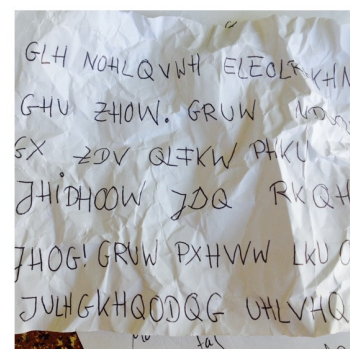 GLH NOHLQVWH
GHU ZHOW. GRUW
GX ZDV QLFKW PHKU
JHIDHOOW JDQ RKQH
JHOG! GRUW PXHVVW LKU
JULHGKHQODQG UHLVHQ